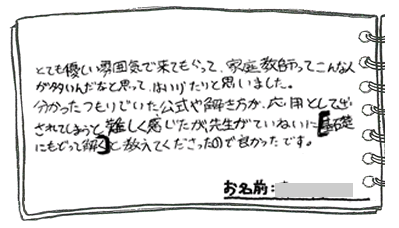 とても優しい雰囲気で来てもらって、家庭教師ってこんな人
が多いんだなと思って、はいりたりと思いました。
分かったつもりでいた公式や解き方が、応用として出
されてしまうと難しく感じたが、先生がていねいに【基礎
にもどって解く】と教えてくださったので良かったです。
お名前：